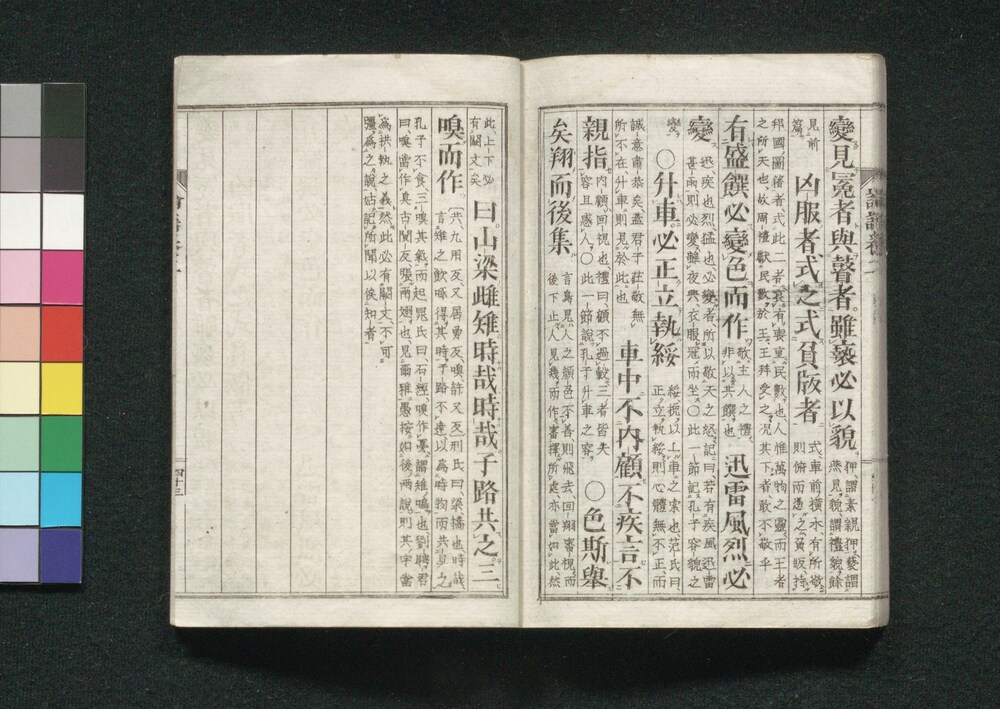 變見冕者與瞽者雖褻必以貌
狎謂素親狎褻謂
燕見貌謂禮貌餘
見前
篇
凶服者式之式負版者
式車前橫木有所敬
則俯而憑之負版持
邦國圖籍者式此二者哀有喪重民數也人惟萬物之靈而王者
之所天也故周禮獻民數於王王拜受之況其下者敢不敬乎
有盛饌必變色而作
敬主人之禮
非以其饌也
迅雷風烈必
變
迅疾也烈猛也必變者所以敬天之怒記曰若有疾風迅雷
甚雨則必變雖夜必興衣服冠而坐○此一節記孔子容貌之
變
○升車必正立執綏
綏挽以上車之索也范氏曰
正立執綏則心體無不正而
誠意肅恭矣蓋君子莊敬無
所不在升車則見於此也
車中不內顧不疾言不
親指
內顧回視也禮曰顧不過轂三者皆失
容且惑人○此一節說孔子升車之容
○色斯舉
矣翔而後集
言鳥見人之顏色不善則飛去回翔審視而
後下止人之見幾而作審擇所處亦當如此然
此上下必
有闕文矣
曰山梁雌雉時哉時哉子路共之三
嗅而作
共九用反又居勇反嗅許又反邢氏曰梁橋也時哉
言雉之飲啄得其時子路不達以為時物而共具之
孔子不食三嗅其氣而起晁氏曰石經嗅作戛謂雉鳴也劉聘君
曰嗅當作狊古闃反張兩翅也見爾雅愚按如後兩說則共字當
為拱執之義然此必有闕文不可
彊為之說姑記所聞以俟知者
四十三